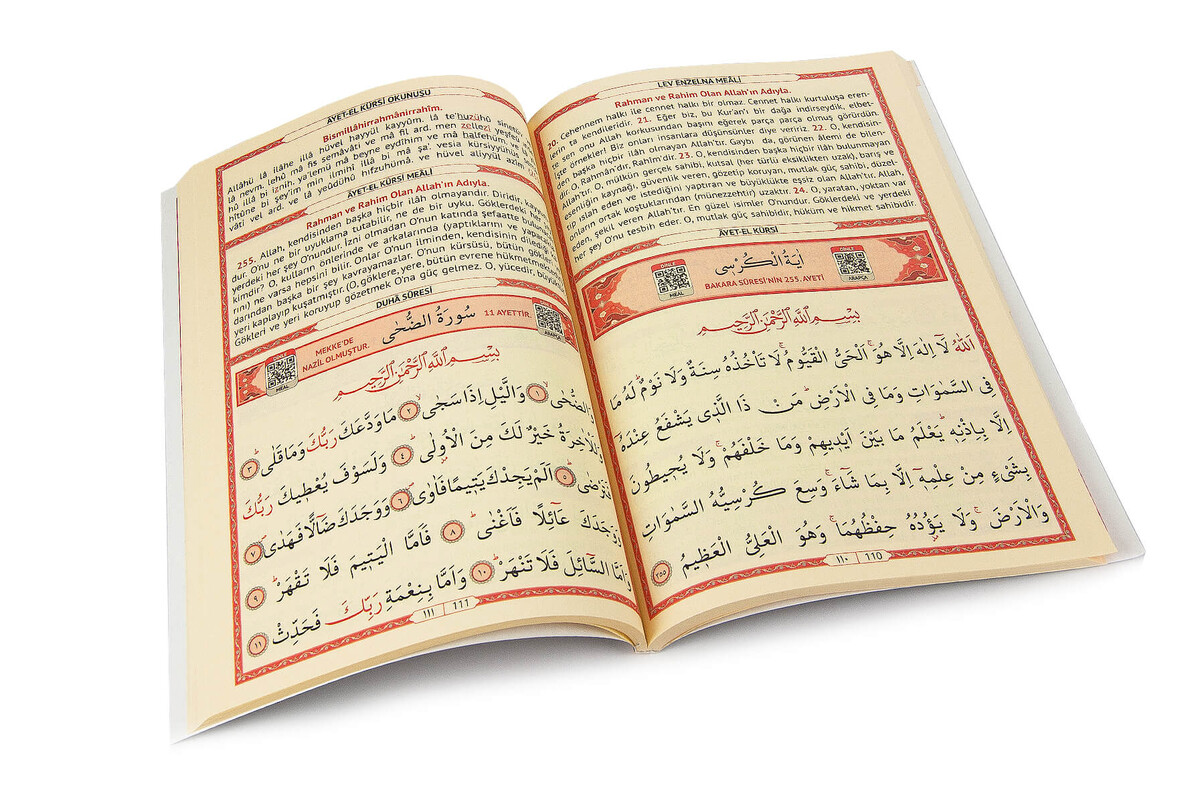 LEV ENZELNA MEÂLİ
Rahman ve Rahim Olan Allah'ın Adıyla.
20. Cehennem halkı ile cennet halkı bir olmaz. Cennet halkı kurtuluşa eren-
lerin ta kendileridir. 21. Eğer biz, bu Kur'an'ı bir dağa indirseydik, elbet-
te sen onu Allah korkusundan başını eğerek parça parça olmuş görürdün.
İşte örnekler! Biz onları insanlara düşünsünler diye veririz. 22. O, kendisin-
den başka hiçbir ilâh olmayan Allah'tır. Gaybı da, görünen âlemi de bilen-
dir. O, Rahmân'dır, Rahîm'dir. 23. O, kendisinden başka hiçbir ilâh bulunmayan
Allah'tır. O, mülkün gerçek sahibi, kutsal (her türlü eksiklikten uzak), barış ve
esenliğin kaynağı, güvenlik veren, gözetip koruyan, mutlak güç sahibi, düzel-
tip ıslah eden ve istediğini yaptıran ve büyüklükte eşsiz olan Allah'tır. Allah,
onların ortak koştuklarından (münezzehtir) uzaktır. 24. O, yaratan, yoktan var
eden, şekil veren Allah'tır. En güzel isimler O'nundur. Göklerdeki ve yerdeki
her şey O'nu tesbih eder. O, mutlak güç sahibidir, hüküm ve hikmet sahibidir.
ÂYET-EL KÜRSİ
DİNLE MEAL
اٰيَةُ الْكُرْسِي
BAKARA SÛRESİ'NİN 255. AYETİ
DİNLE ARAPÇA
بِسْمِ اللّٰهِ الرَّحْمٰنِ الرَّحِيمِ
اَللّٰهُ لَا اِلٰهَ اِلَّا هُوَۚ اَلْحَيُّ الْقَيُّومُۚ لَا تَأْخُذُهُ سِنَةٌ وَلَا نَوْمٌۜ لَهُ مَا
فِي السَّمٰوَاتِ وَمَا فِي الْاَرْضِۜ مَنْ ذَا الَّذٖي يَشْفَعُ عِنْدَهُٓ
اِلَّا بِاِذْنِهٖۜ يَعْلَمُ مَا بَيْنَ اَيْدٖيهِمْ وَمَا خَلْفَهُمْۚ وَلَا يُحٖيطُونَ
بِشَيْءٍ مِنْ عِلْمِهٖٓ اِلَّا بِمَا شَٓاءَۚ وَسِعَ كُرْسِيُّهُ السَّمٰوَاتِ
وَالْاَرْضَۚ وَلَا يَؤُ۫دُهُ حِفْظُهُمَاۚ وَهُوَ الْعَلِيُّ الْعَظٖيمُ ٢٥٥
١١٠ 110
ÂYET-EL KÜRSİ OKUNUŞU
Bismillâhirrahmânirrahîm.
Allâhü lâ ilâhe illâ hüvel hayyül kayyûm. lâ te'huzühü sinetün
lâ nevm. lehû mâ fis semâvâti ve mâ fil ard. men zellezî yeşfeu
hû illâ bi iznih. ya'lemü mâ beyne eydîhim ve mâ halfehüm ve
hîtûne bi şey'im min ilmihî illâ bi mâ şa'. vesia kürsiyyühü
vâti vel ard. ve lâ yeûdühû hıfzuhümâ ve hüvel aliyyül azîm
ÂYET-EL KÜRSİ MEÂLİ
Rahman ve Rahim Olan Allah'ın Adıyla.
255. Allah, kendisinden başka hiçbir ilâh olmayandır. Diridir, kayyum-
dur. O'nu ne bir uyuklama tutabilir, ne de bir uyku. Göklerdeki her
yerdeki her şey O'nundur. İzni olmadan O'nun katında şefaatte bulunacak
kimdir? O, kulların önlerinde ve arkalarında (yaptıklarını ve yapacakla-
rını) ne varsa hepsini bilir. Onlar O'nun ilminden, kendisinin dilediği
darından başka bir şey kavrayamazlar. O'nun kürsüsü, bütün gökleri
yeri kaplayıp kuşatmıştır. (O, göklere, yere, bütün evrene hükmetmektedir.)
Gökleri ve yeri koruyup gözetmek O'na güç gelmez. O, yücedir, büyük
DUHÂ SÛRESİ
DİNLE MEAL
MEKKE'DE
NAZİL OLMUŞTUR.
سُورَةُ الضُّحٰى
11 AYETTİR.
ARAPÇA
بِسْمِ اللّٰهِ الرَّحْمٰنِ الرَّحِيمِ
وَالضُّحٰىۙ ١ وَالَّيْلِ اِذَا سَجٰىۙ ٢ مَا وَدَّعَكَ رَبُّكَ وَمَا قَلٰىۜ ٣
وَلَلْاٰخِرَةُ خَيْرٌ لَكَ مِنَ الْاُو۫لٰىۜ ٤ وَلَسَوْفَ يُعْطٖيكَ رَبُّكَ
فَتَرْضٰىۜ ٥ اَلَمْ يَجِدْكَ يَتٖيمًا فَاٰوٰىۖ ٦ وَوَجَدَكَ ضَٓالًّا فَهَدٰىۖ ٧
وَوَجَدَكَ عَٓائِلًا فَاَغْنٰىۜ ٨ فَاَمَّا الْيَتٖيمَ فَلَا تَقْهَرْۜ ٩
وَاَمَّا السَّٓائِلَ فَلَا تَنْهَرْۜ ١٠ وَاَمَّا بِنِعْمَةِ رَبِّكَ فَحَدِّثْ ١١
١١١ 111